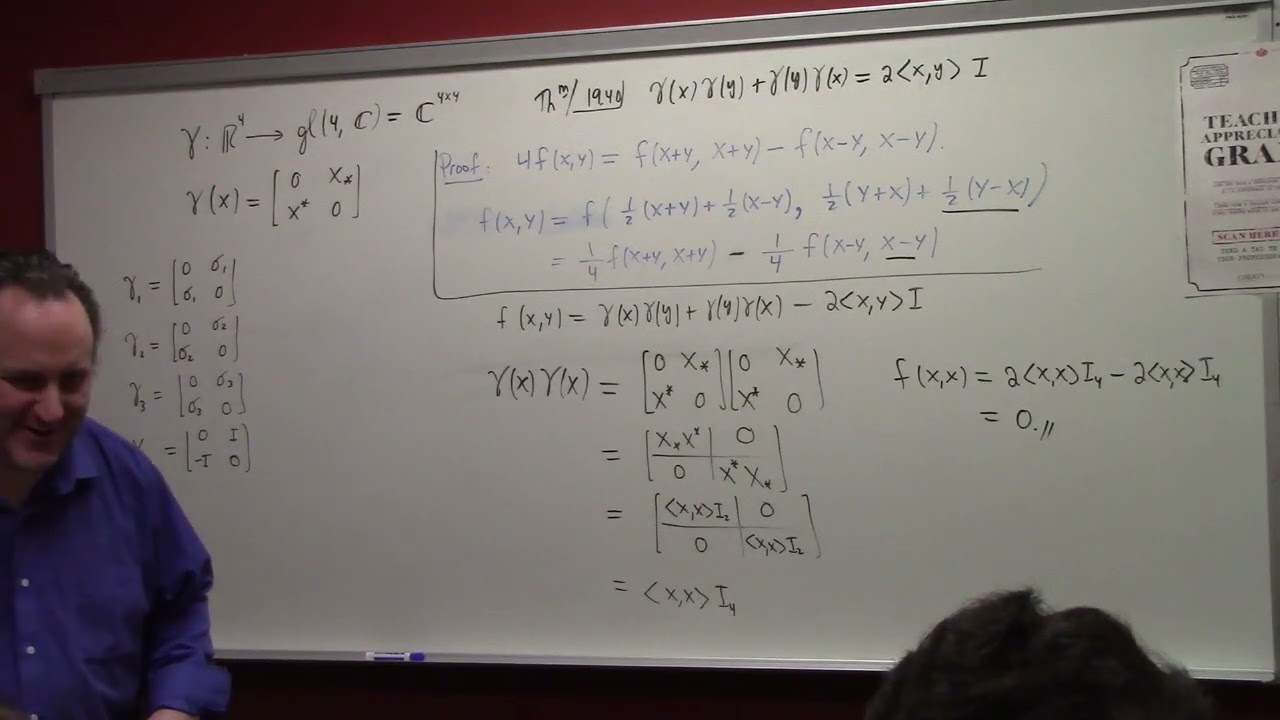 γ: ℝ⁴ → gl(4, ℂ) = ℂ^{4×4}
γ(x) = [0 X_* ; X^* 0]
γ₁ = [0 σ₁ ; σ₁ 0]
γ₂ = [0 σ₂ ; σ₂ 0]
γ₃ = [0 σ₃ ; σ₃ 0]
= [0 I ; -I 0]
Thᵐ/ 1940 γ(x)γ(y) + γ(y)γ(x) = 2<x,y> I
Proof: 4f(x,y) = f(x+y, x+y) - f(x-y, x-y).
f(x,y) = f(½(x+y) + ½(x-y), ½(y+x) + ½(y-x))
= ¼ f(x+y, x+y) - ¼ f(x-y, x-y)
f(x,y) = γ(x)γ(y) + γ(y)γ(x) - 2<x,y>I
γ(x)γ(x) = [0 X_* ; X^* 0][0 X_* ; X^* 0]
= [X_*X^* 0 ; 0 X^*X_*]
= [<x,x>I₂ 0 ; 0 <x,x>I₂]
= <x,x> I₄
f(x,x) = 2<x,x>I₄ - 2<x,x>I₄
= 0.//
TEACH
APPRECIA
GRA
SCAN HERE